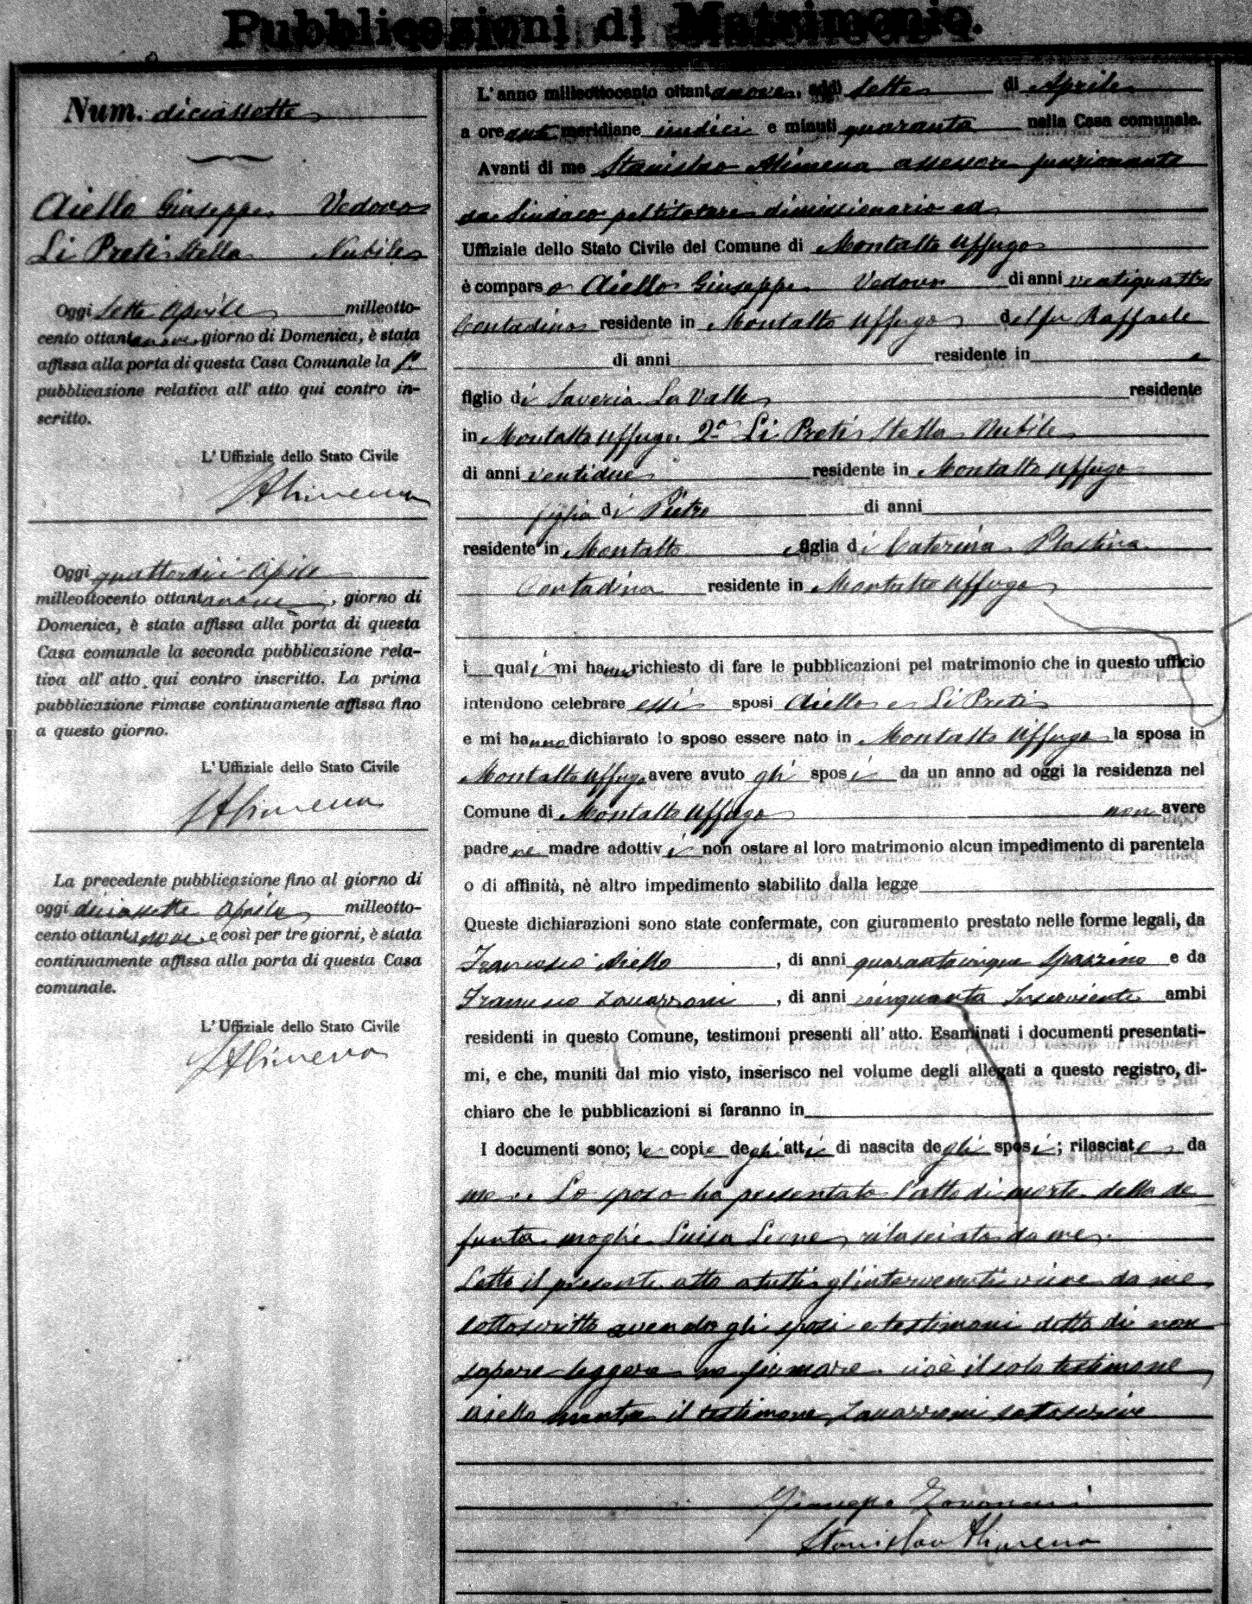 Pubblicazioni di Matrimonio.
Num. diciassette
Aiello Giuseppe Vedovo
Li Preti Stella Nubile
Oggi sette Aprile milleotto-
cento ottantanove, giorno di Domenica, è stata
affissa alla porta di questa Casa Comunale la 1ª
pubblicazione relativa all' atto qui contro in-
scritto.
L' Uffiziale dello Stato Civile
SAlimena
Oggi quattordici Aprile
milleottocento ottantanove, giorno di
Domenica, è stata affissa alla porta di questa
Casa comunale la seconda pubblicazione rela-
tiva all' atto qui contro inscritto. La prima
pubblicazione rimase continuamente affissa fino
a questo giorno.
L' Uffiziale dello Stato Civile
SAlimena
La precedente pubblicazione fino al giorno di
oggi diciassette Aprile milleotto-
cento ottantanove, e così per tre giorni, è stata
continuamente affissa alla porta di questa Casa
comunale.
L' Uffiziale dello Stato Civile
SAlimena
L' anno milleottocento ottantanove, addì sette di Aprile
a ore anti meridiane undici e minuti quaranta nella Casa comunale.
Avanti di me Stanislao Alimena assessore funzionante
da Sindaco pel titolare dimissionario ed
Uffiziale dello Stato Civile del Comune di Montalto Uffugo
è comparso Aiello Giuseppe Vedovo di anni ventiquattro
Contadino residente in Montalto Uffugo del fu Raffaele
di anni residente in
figlio di Saveria La Valle residente
in Montalto Uffugo. 2º Li Preti Stella Nubile
di anni ventidue residente in Montalto Uffugo
figlia di Pietro di anni
residente in Montalto figlia di Caterina Plastina
Contadina residente in Montalto Uffugo
i quali mi hanno richiesto di fare le pubblicazioni pel matrimonio che in questo ufficio
intendono celebrare essi sposi Aiello e Li Preti
e mi hanno dichiarato lo sposo essere nato in Montalto Uffugo la sposa in
Montalto Uffugo avere avuto gli sposi da un anno ad oggi la residenza nel
Comune di Montalto Uffugo non avere
padre ne madre adottivi non ostare al loro matrimonio alcun impedimento di parentela
o di affinità, nè altro impedimento stabilito dalla legge
Queste dichiarazioni sono state confermate, con giuramento prestato nelle forme legali, da
Francesco Aiello, di anni quarantacinque Spazzino e da
Francesco Zavarroni, di anni cinquanta Inserviente ambi
residenti in questo Comune, testimoni presenti all' atto. Esaminati i documenti presentati-
mi, e che, muniti dal mio visto, inserisco nel volume degli allegati a questo registro, di-
chiaro che le pubblicazioni si faranno in
I documenti sono; le copie degli atti di nascita degli sposi; rilasciate da
me. Lo sposo ha presentato l'atto di morte della de
funta moglie Luisa Leone, rilasciato da me.
Letto il presente atto a tutti gl'intervenuti viene da me
sottoscritto avendo gli sposi e testimoni detto di non
sapere leggere ne firmare. cioè il solo testimone
Aiello mentre il testimone Zavarroni sottoscrive
Zavarroni
Stanislao Alimena